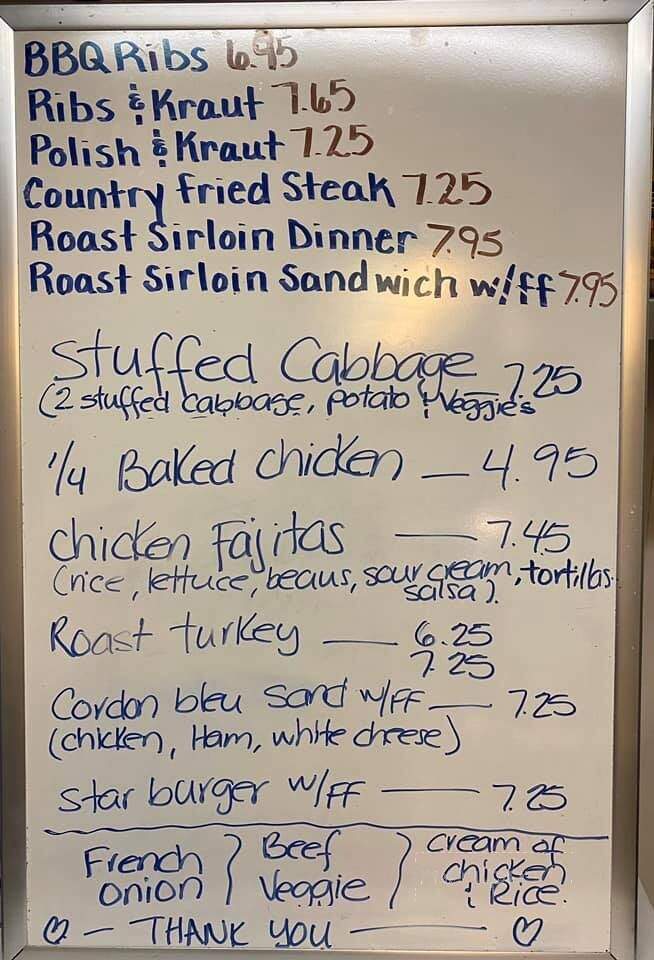 BBQ Ribs 6.95
Ribs & Kraut 7.65
Polish & Kraut 7.25
Country Fried Steak 7.25
Roast Sirloin Dinner 7.95
Roast Sirloin Sandwich w/ff 7.95
Stuffed Cabbage — 7.25
(2 stuffed cabbage, potato & Veggie's
1/4 Baked chicken — 4.95
chicken Fajitas — 7.45
(rice, lettuce, beans, sour cream, tortillas
salsa).
Roast turkey — 6.25
7.25
Cordon bleu Sand w/FF — 7.25
(chicken, Ham, white cheese)
Star burger w/FF — 7.25
French onion
Beef Veggie
Cream of chicken & Rice.
♡ — THANK YOU — ♡